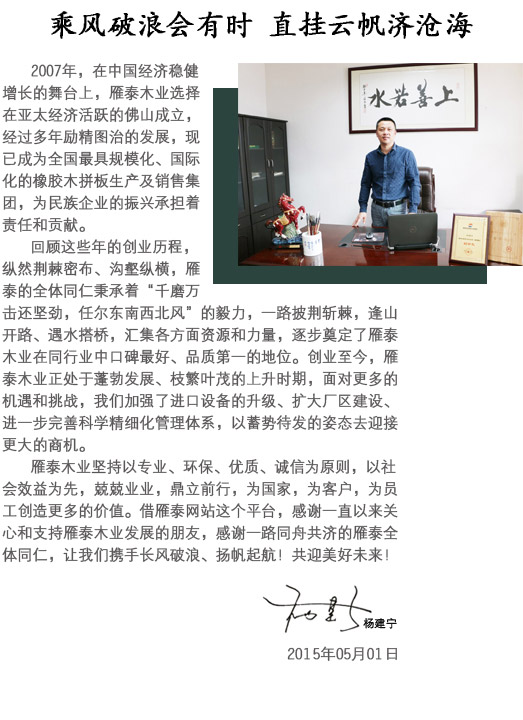 乘风破浪会有时 直挂云帆济沧海
2007年，在中国经济稳健
增长的舞台上，雁泰木业选择
在亚太经济活跃的佛山成立，
经过多年励精图治的发展，现
已成为全国最具规模化、国际
化的橡胶木拼板生产及销售集
团，为民族企业的振兴承担着
责任和贡献。
上善若水
回顾这些年的创业历程，
纵然荆棘密布、沟壑纵横，雁
泰的全体同仁秉承着“千磨万
击还坚劲，任尔东南西北风”的毅力，一路披荆斩棘，逢山
开路、遇水搭桥，汇集各方面资源和力量，逐步奠定了雁泰
木业在同行业中口碑最好、品质第一的地位。创业至今，雁
泰木业正处于蓬勃发展、枝繁叶茂的上升时期，面对更多的
机遇和挑战，我们加强了进口设备的升级、扩大厂区建设、
进一步完善科学精细化管理体系，以蓄势待发的姿态去迎接
更大的商机。
雁泰木业坚持以专业、环保、优质、诚信为原则，以社
会效益为先，兢兢业业，鼎立前行，为国家，为客户，为员
工创造更多的价值。借雁泰网站这个平台，感谢一直以来关
心和支持雁泰木业发展的朋友，感谢一路同舟共济的雁泰全
体同仁，让我们携手长风破浪、扬帆起航！共迎美好未来！
杨建宁
2015年05月01日